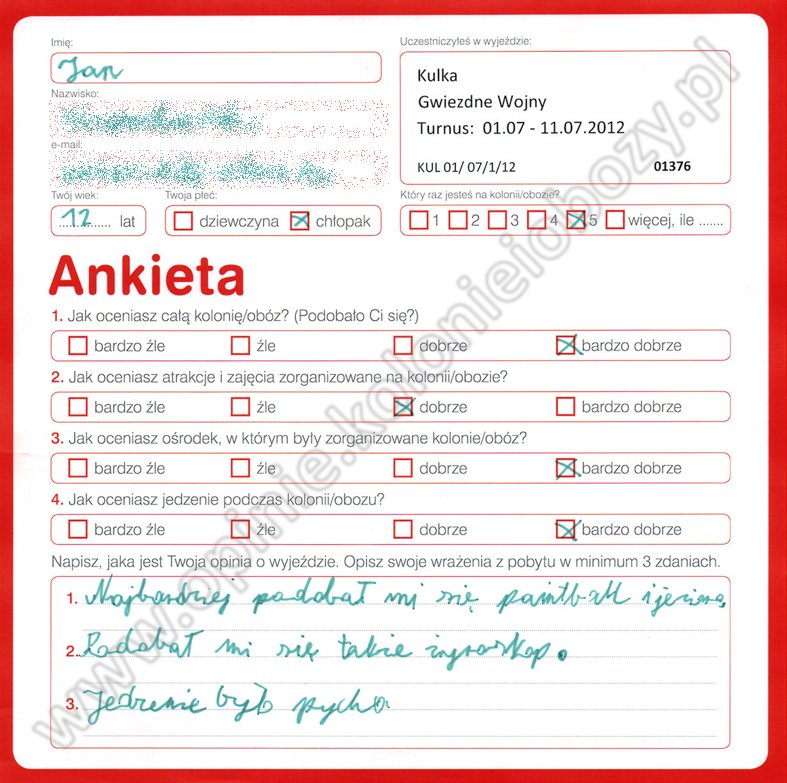 Imię:
Jan
Uczestniczyłeś w wyjeździe:
Kulka
Gwiezdne Wojny
Turnus: 01.07 - 11.07.2012
KUL 01/ 07/1/12 01376
Nazwisko:
e-mail:
Twój wiek:
12 lat
Twoja płeć:
dziewczyna chłopak
Który raz jesteś na kolonii/obozie?
1 2 3 4 5 więcej, ile .......
Ankieta
1. Jak oceniasz całą kolonię/obóz? (Podobało Ci się?)
bardzo źle źle dobrze bardzo dobrze
2. Jak oceniasz atrakcje i zajęcia zorganizowane na kolonii/obozie?
bardzo źle źle dobrze bardzo dobrze
3. Jak oceniasz ośrodek, w którym były zorganizowane kolonie/obóz?
bardzo źle źle dobrze bardzo dobrze
4. Jak oceniasz jedzenie podczas kolonii/obozu?
bardzo źle źle dobrze bardzo dobrze
Napisz, jaka jest Twoja opinia o wyjeździe. Opisz swoje wrażenia z pobytu w minimum 3 zdaniach.
1. Najbardziej podobał mi się paintball i jezioro,
2. Podobał mi się także żyroskop.
3. Jedzenie było pycha
www.opinie.kolonieiobozy.pl